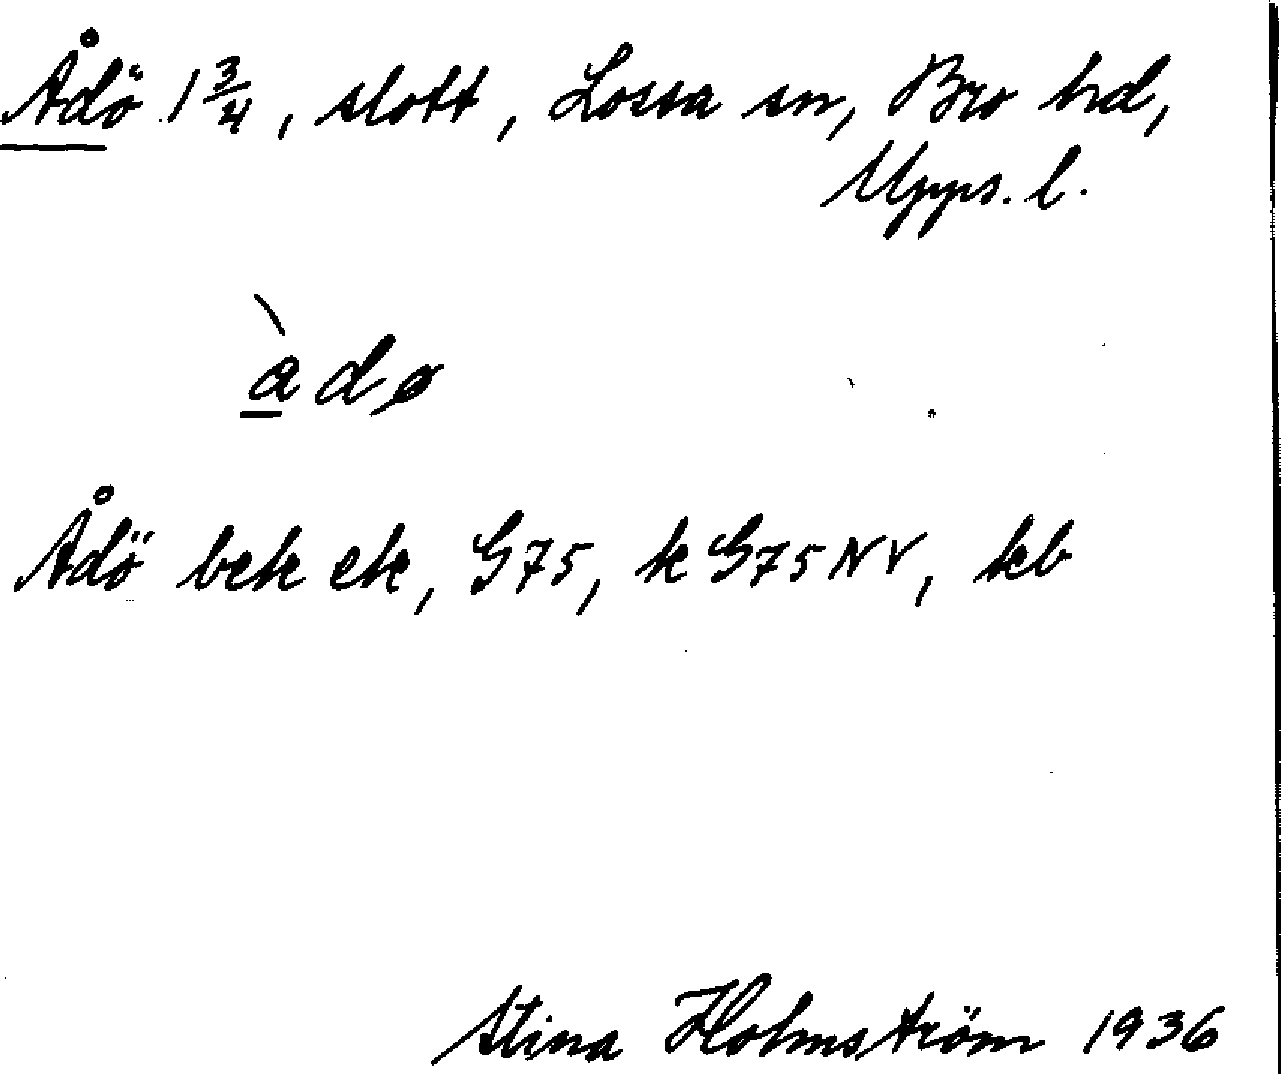 Ådö 1 3/4, slott, Lossa sn, Bro hd,
Upps. l.
àdø
Ådö bek ek, G75, k G75NV, kb
Stina Holmström 1936